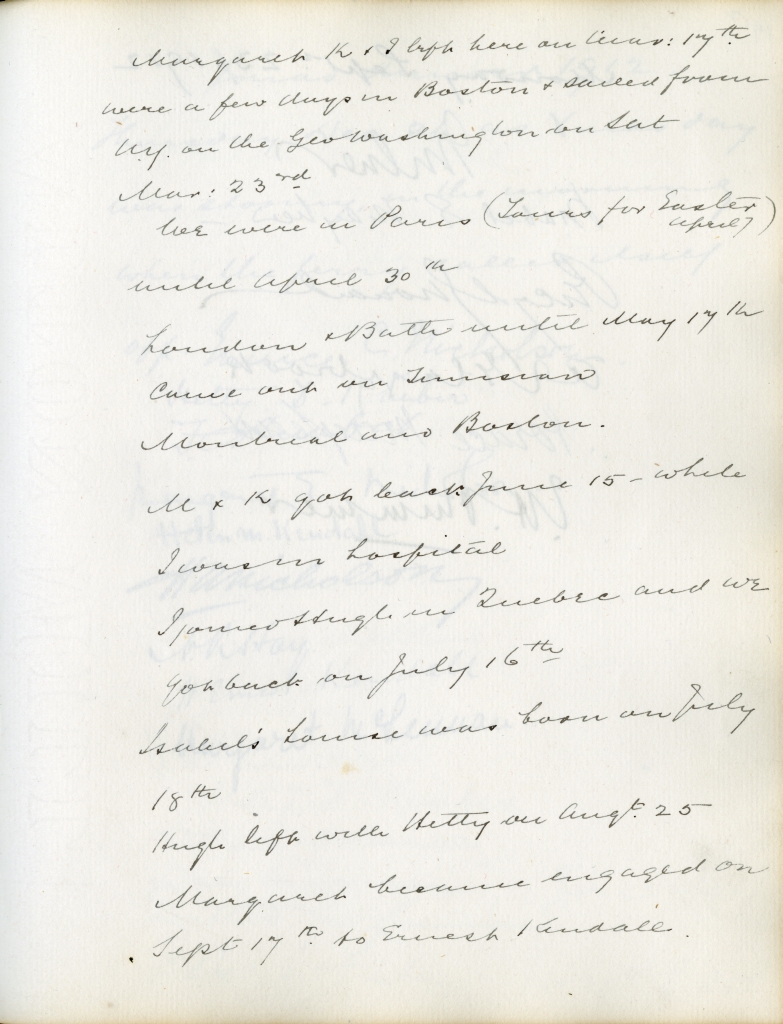 Margaret K & I left here on Mar: 17th
were a few days in Boston & sailed from
N.Y. on the Geo Washington on Sat
Mar: 23rd
We were in Paris (Tours for Easter
April 7)
until April 30th
London & Bath until May 17th
Came out on Tunisian
Montreal and Boston.
M & K got back June 15 - while
I was in hospital
I joined Hugh in Quebec and we
got back on July 16th
Isabel's Louise was born on July
18th
Hugh left with Hetty on Augt. 25
Margaret became engaged on
Sept 17th to Ernest Kendall.